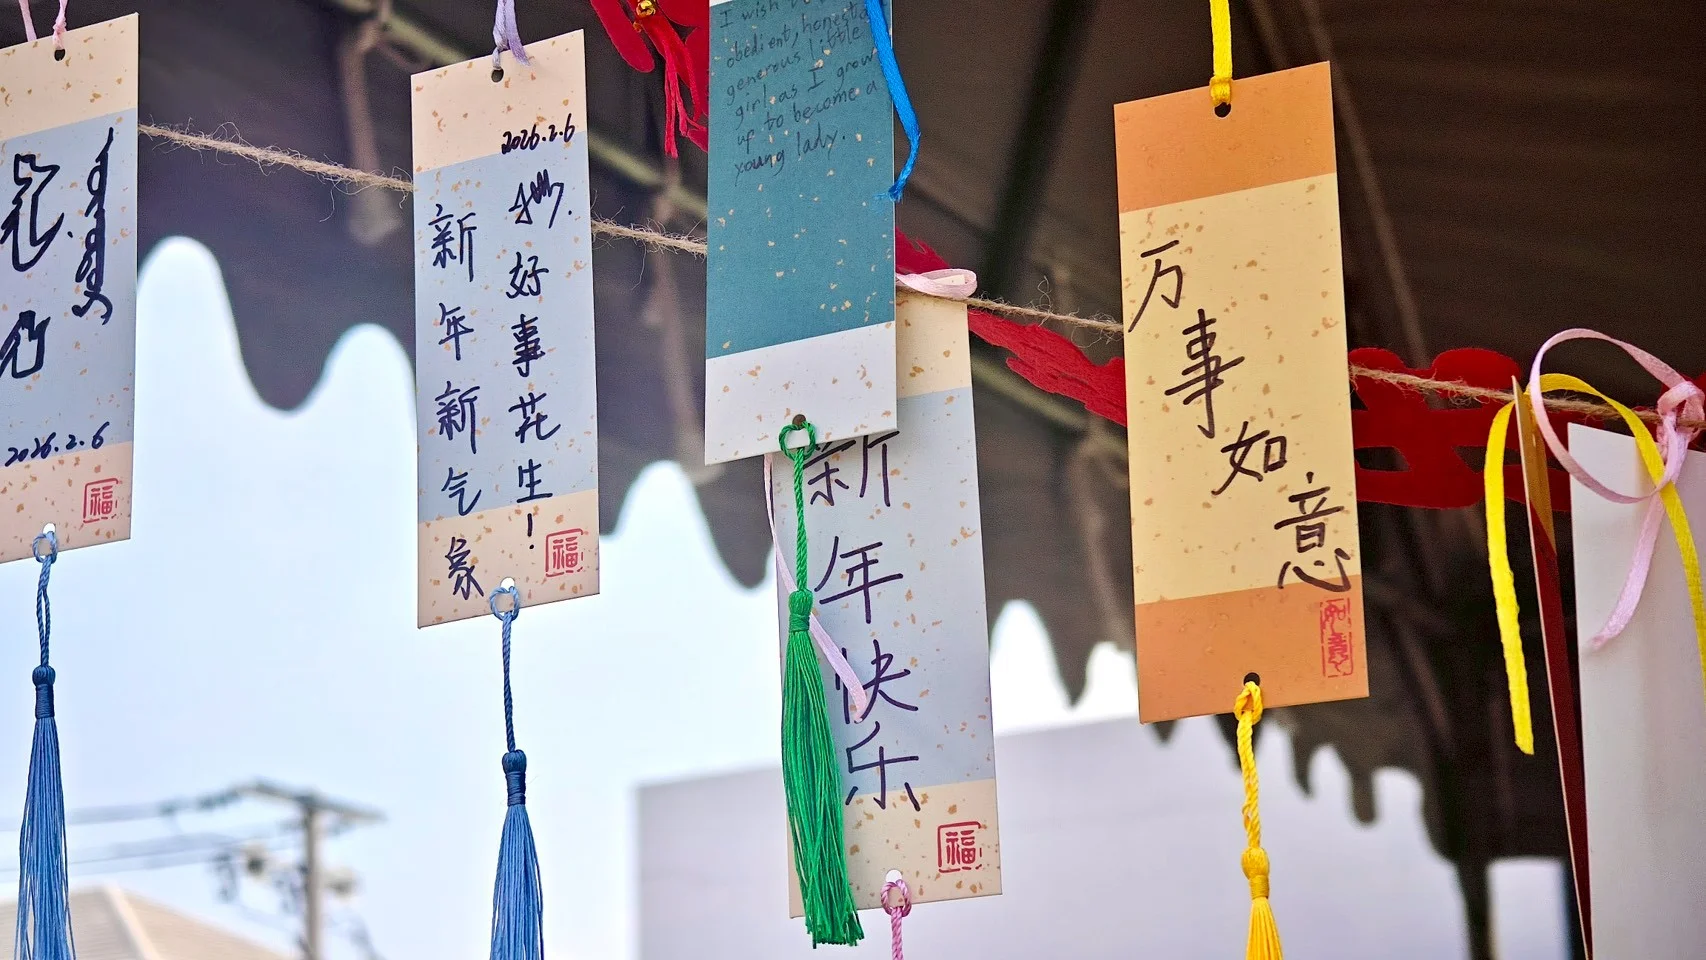 2026.2.6
福
2026.2.6
好事花生!
新年新气象
福
I wish
obedient, honest,
generous little
girl as I grow
up to become a
young lady.
新年快乐
福
万事如意
如意